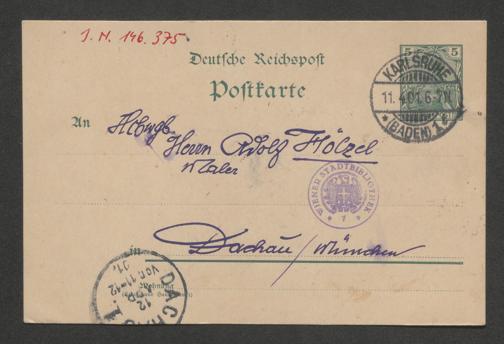 J. N. 146.375
Deutsche Reichspost
Postkarte
5 5
KARLSRUHE
11.4.01.6-7N.
(BADEN) 1
An
Herrn Adolf Hölzel
Maler
WIENER STADTBIBLIOTHEK
in
Dachau / München
Wohnung
DACHAU I
12 APR
VOR. 11-12
01.